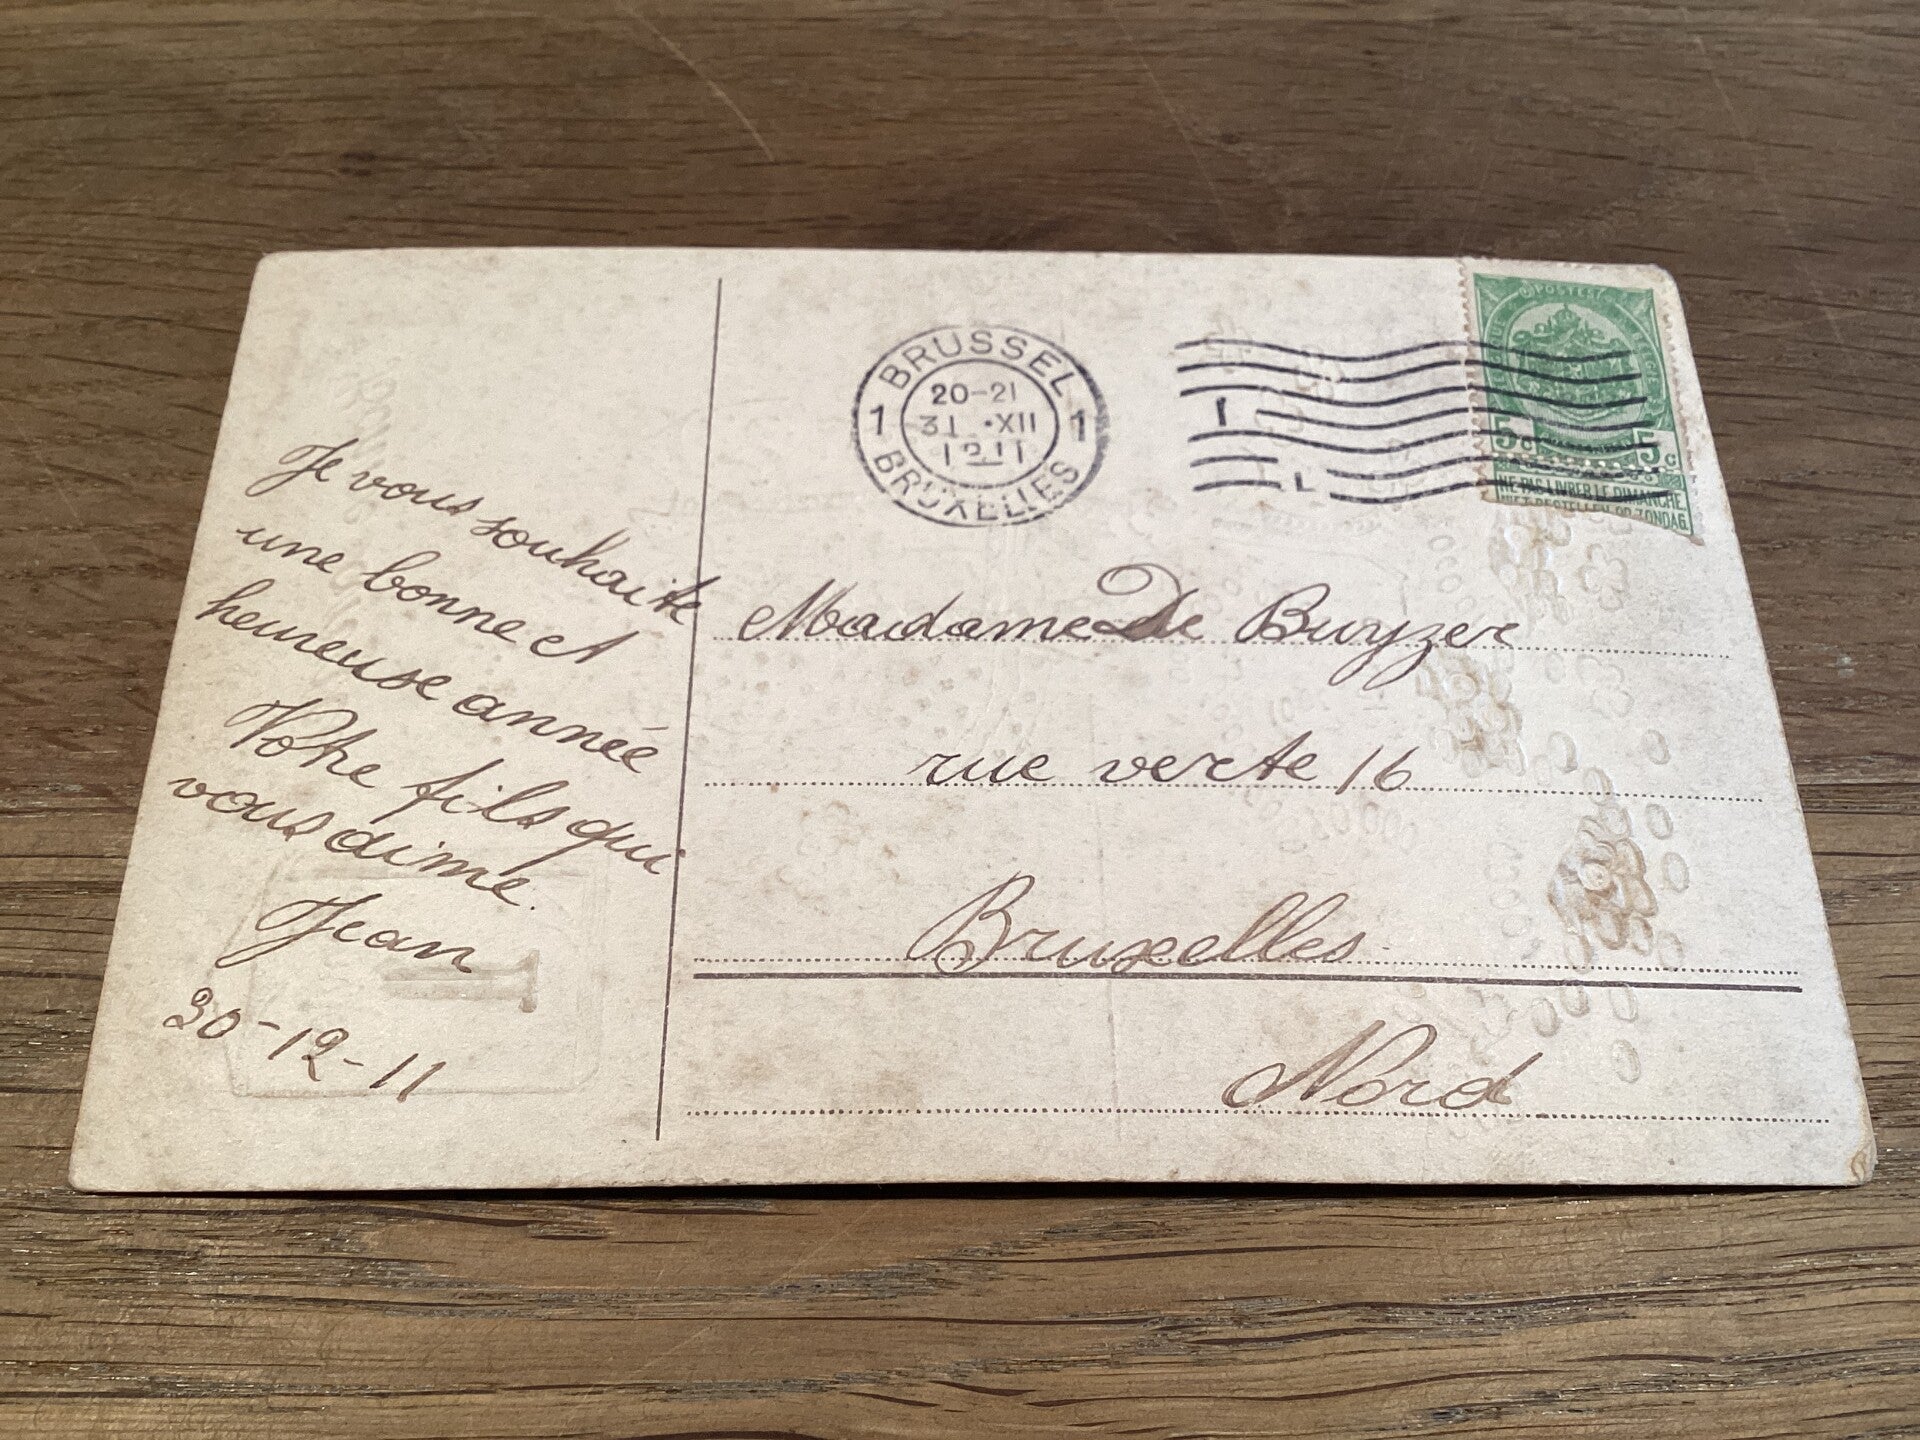 Je vous souhaite
une bonne et
heureuse année
Votre fils qui
vous aime.
Jean
30-12-11
BRUSSEL
20-21
1 31 XII 1
1911
BRUXELLES
1
L
POSTES
5c 5c
NE PAS LIVRER LE DIMANCHE
NIET BESTELLEN OP ZONDAG
Madame De Buyzer
rue verte 16
Bruxelles
Nord